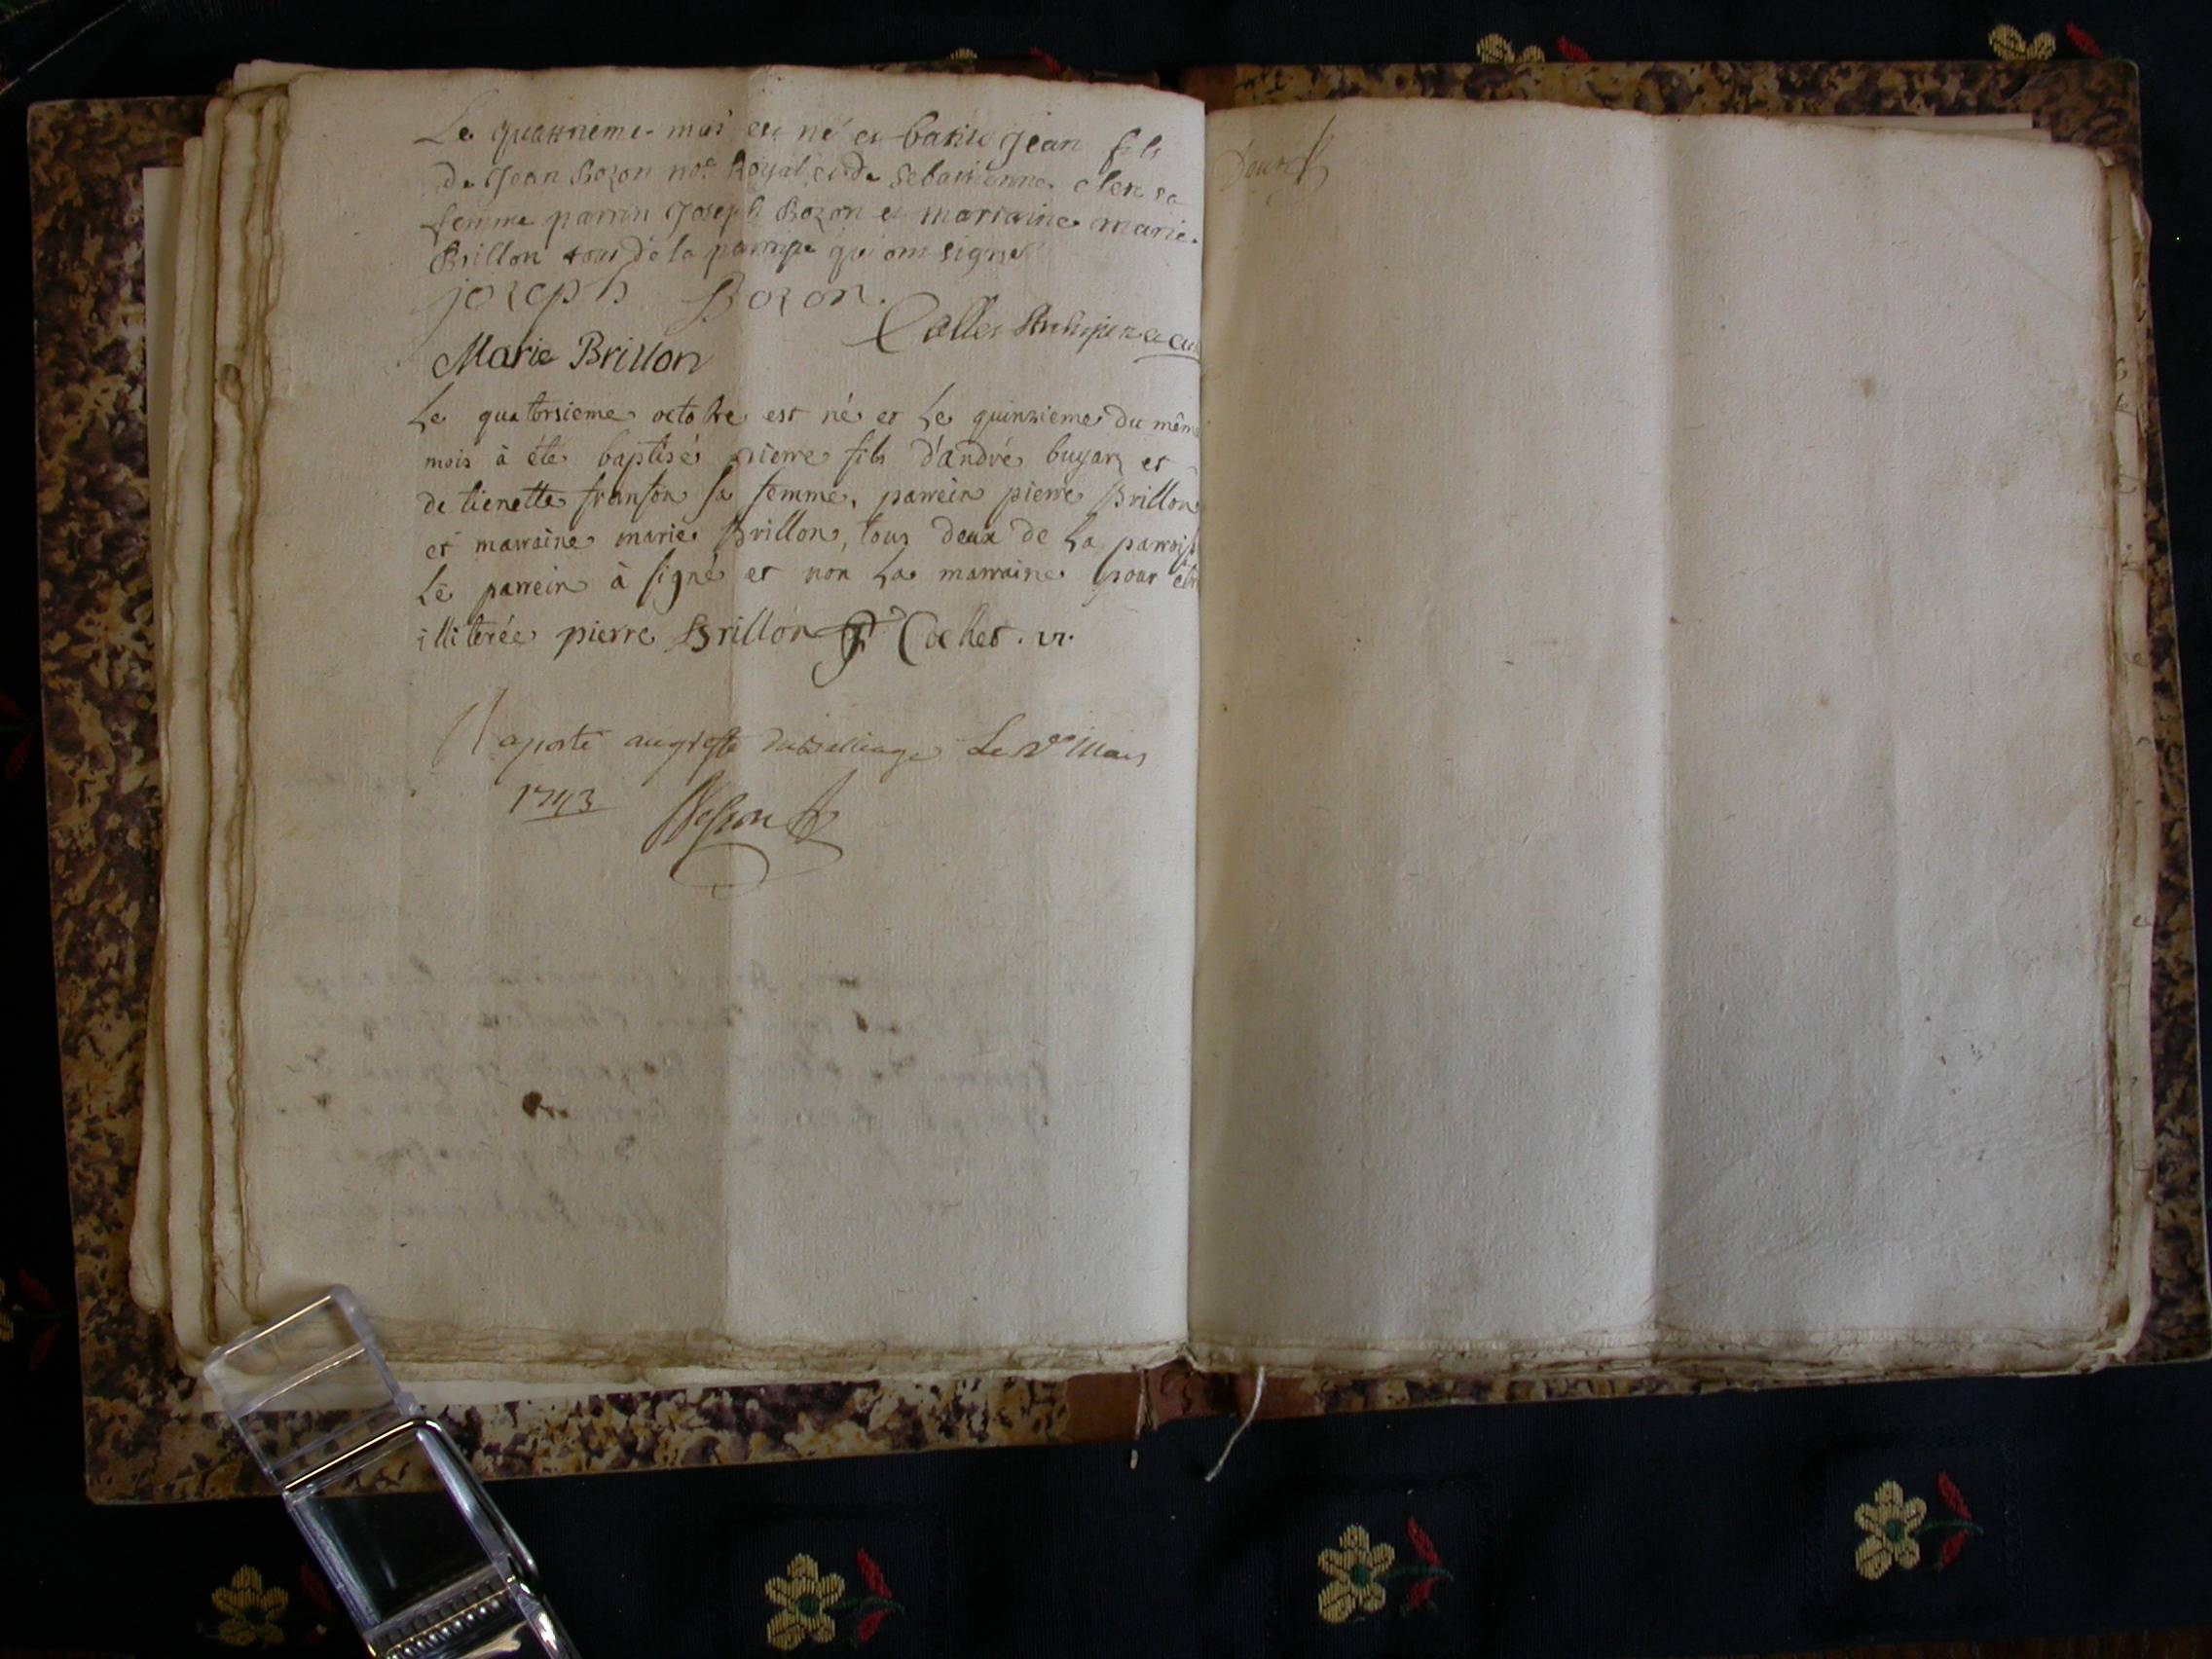 Le quattrieme mai est né et batisé Jean fils
de Jean Bozon nore Royal et de sebastienne clere sa
femme parrin Joseph Bozon et marraine marie
Brillon tous de la parroisse qui ont signé
joseph Bozon.
Marie Brillon
Le quatorsieme octobre est né et Le quinzieme du même
mois à été baptisé pierre fils d'andré buyarz et
de tienette franson sa femme, parrein pierre Brillon
et marraine marie Brillon, tous deux de La parroisse
Le parrein à signé et non La marraine pour être
illiterée pierre Brillon Cochet . vi.
Raporté au greffe du Balliage Le mars
1743